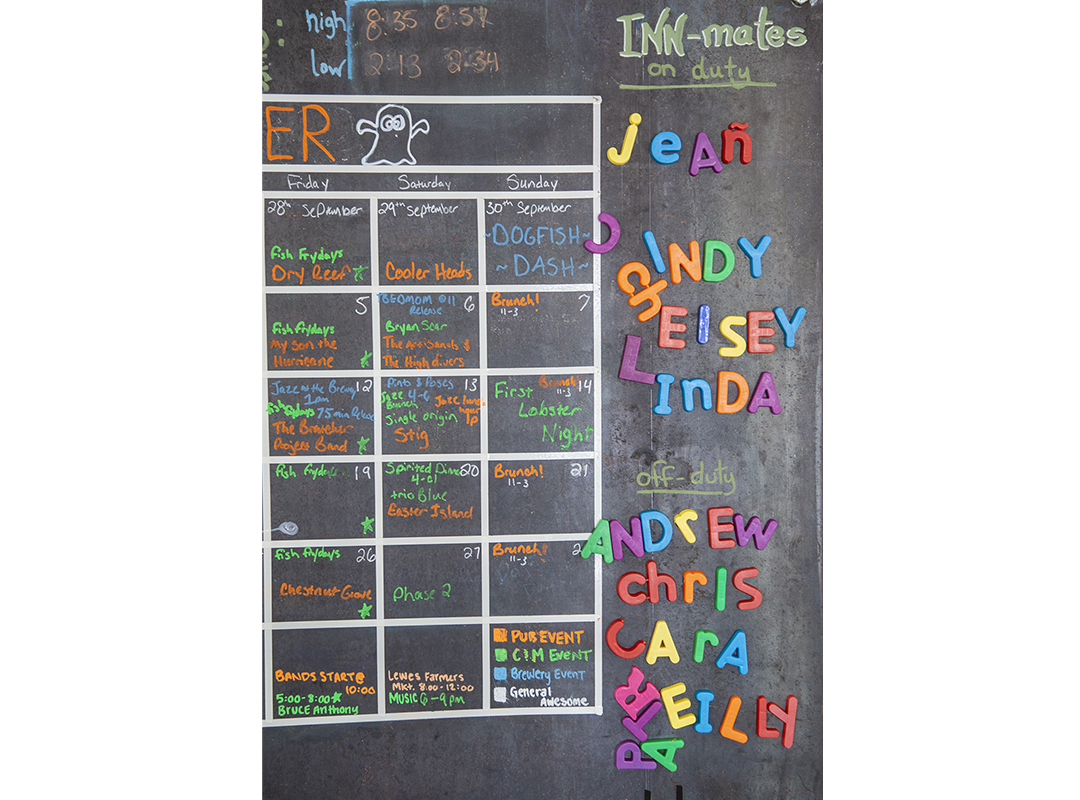 high 8:35 8:57
low 2:13 2:34
ER
Friday Saturday Sunday
28th September
Fish Frydays
Dry Reef
29th September
Cooler Heads
30th September
~DOGFISH~
~DASH~
5
Fish Frydays
My Son the
Hurricane
BEDMOM @11 6
Release
Bryan Scar
The Artisanals &
The High divers
Brunch! 7
11-3
Jazz at the Brewery 12
1am
Fish Frydays 75 min Release
The Bratcher
Project Band
Pints & Poses 13
Jazz 4-6
Brunch
Single origin
Stig
Brunch! 14
11-3
First
Lobster
Night
Fish Frydays 19
Spirited Dinner 20
4-close
trio Blue
Easter Island
Brunch! 21
11-3
Fish Frydays 26
Chestnut Grove
27
Phase 2
Brunch! 2
11-3
BANDS START@
10:00
5:00-8:00
BRUCE ANTHONY
LEWES FARMERS
MKt. 8:00-12:00
MUSIC 6-9pm
PUB EVENT
C!M EVENT
Brewery Event
General
Awesome
INN-mates
on duty
jeAñ
CINDY
chELSEY
LInDA
off-duty
ANDrEW
chrIS
CArA
REILLY